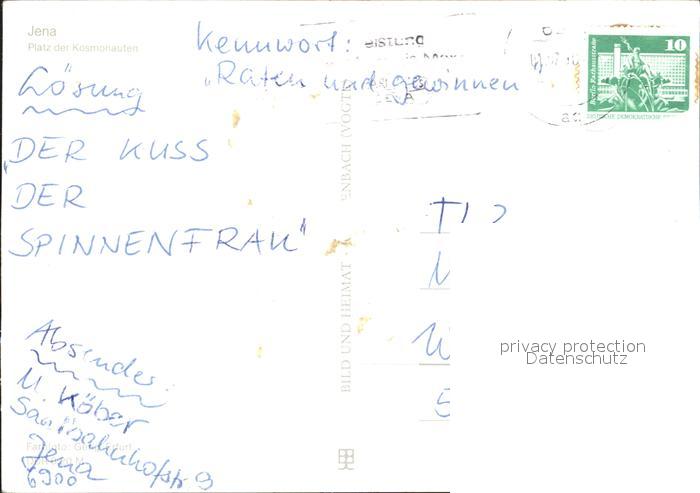 Jena
Platz der Kosmonauten
Kennwort:
"Raten und gewinnen
Lösung
"DER KUSS
DER
SPINNENFRAU"
Absender:
M. Köber
Saalbahnhofstr 9
Jena
6900
BILD UND HEIMAT
ENBACH (VOGTL
10
Berlin Rathausstraße
DEUTSCHE DEMOKRATISCHE
privacy protection
Datenschutz